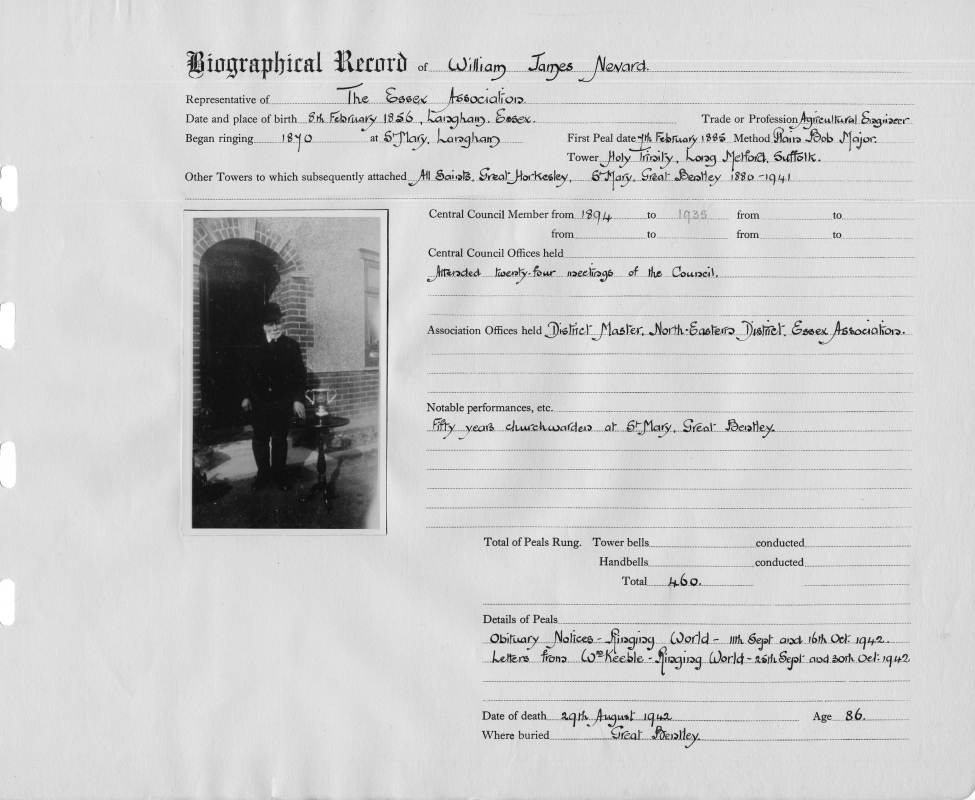 Biographical Record of William James Nevard.
Representative of The Essex Association.
Date and place of birth 8th February 1856, Langham, Essex. Trade or Profession Agricultural Engineer
Began ringing 1870 at St Mary, Langham First Peal date 7th February 1885 Method Plain Bob Major.
Tower Holy Trinity, Long Melford, Suffolk.
Other Towers to which subsequently attached All Saints, Great Horkesley, St Mary, Great Bentley 1880-1941
Central Council Member from 1894 to 1935 from to
from to from to
Central Council Offices held
Attended twenty-four meetings of the Council.
Association Offices held District Master, North-Eastern District, Essex Association.
Notable performances, etc.
Fifty years churchwarden at St Mary, Great Bentley.
Total of Peals Rung. Tower bells conducted
Handbells conducted
Total 460.
Details of Peals
Obituary Notices - Ringing World - 11th Sept and 16th Oct: 1942.
Letters from Wm Keeble - Ringing World - 25th Sept and 30th Oct: 1942
Date of death 29th August 1942 Age 86.
Where buried Great Bentley.